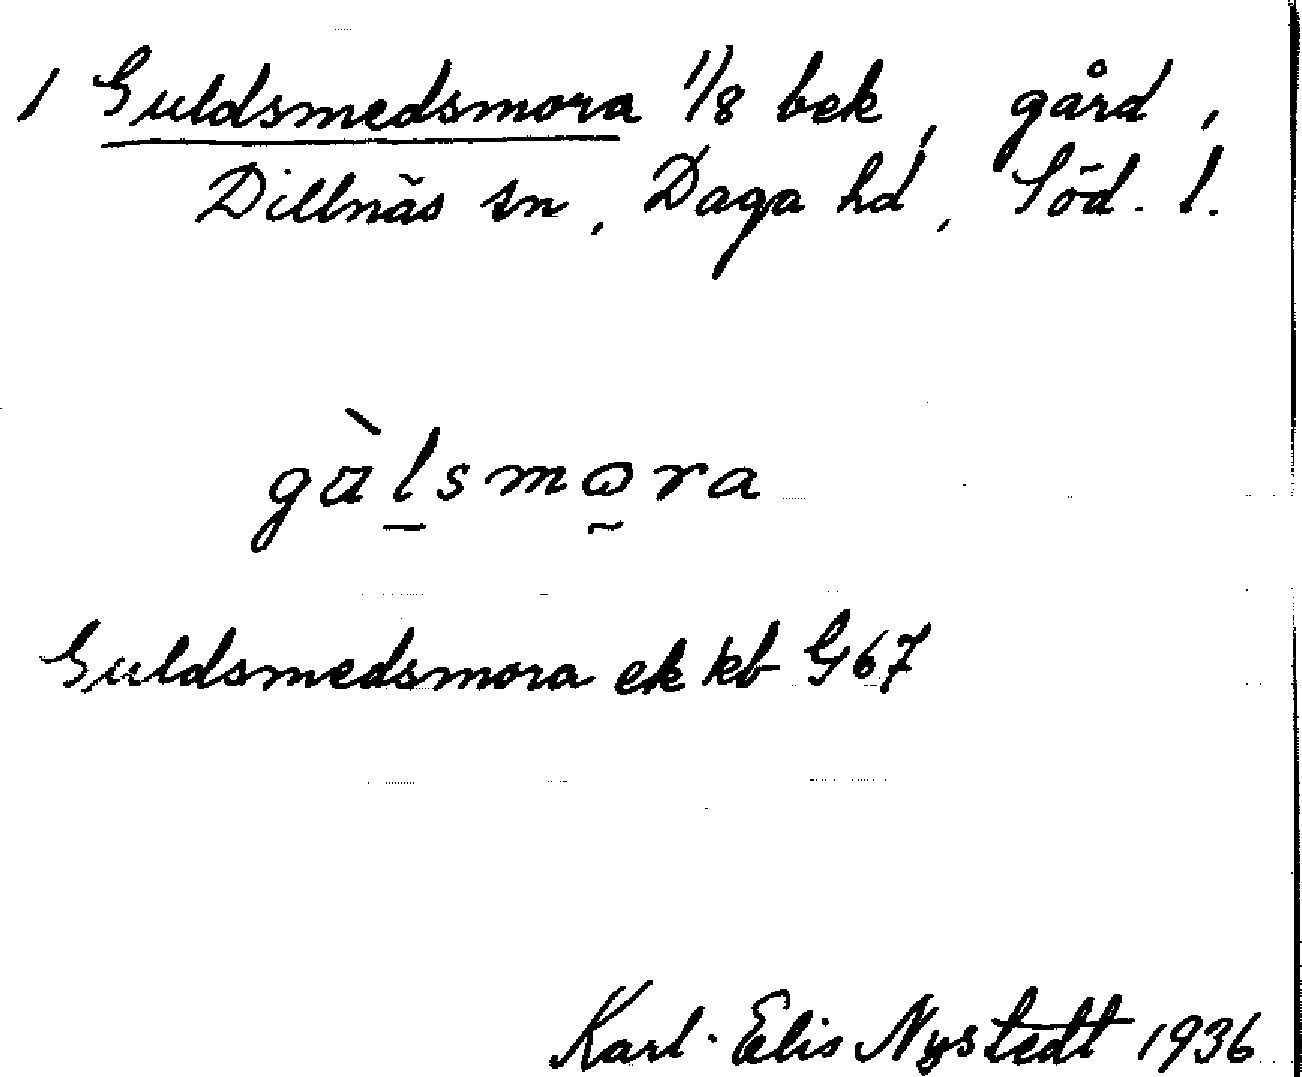 1 Guldsmedsmora 1/8 bek, gård,
Dillnäs sn, Daga hd, Söd. l.
gɑ̀l̠smo̰ra
Guldsmedsmora ek kb G67
Karl-Elis Nystedt 1936